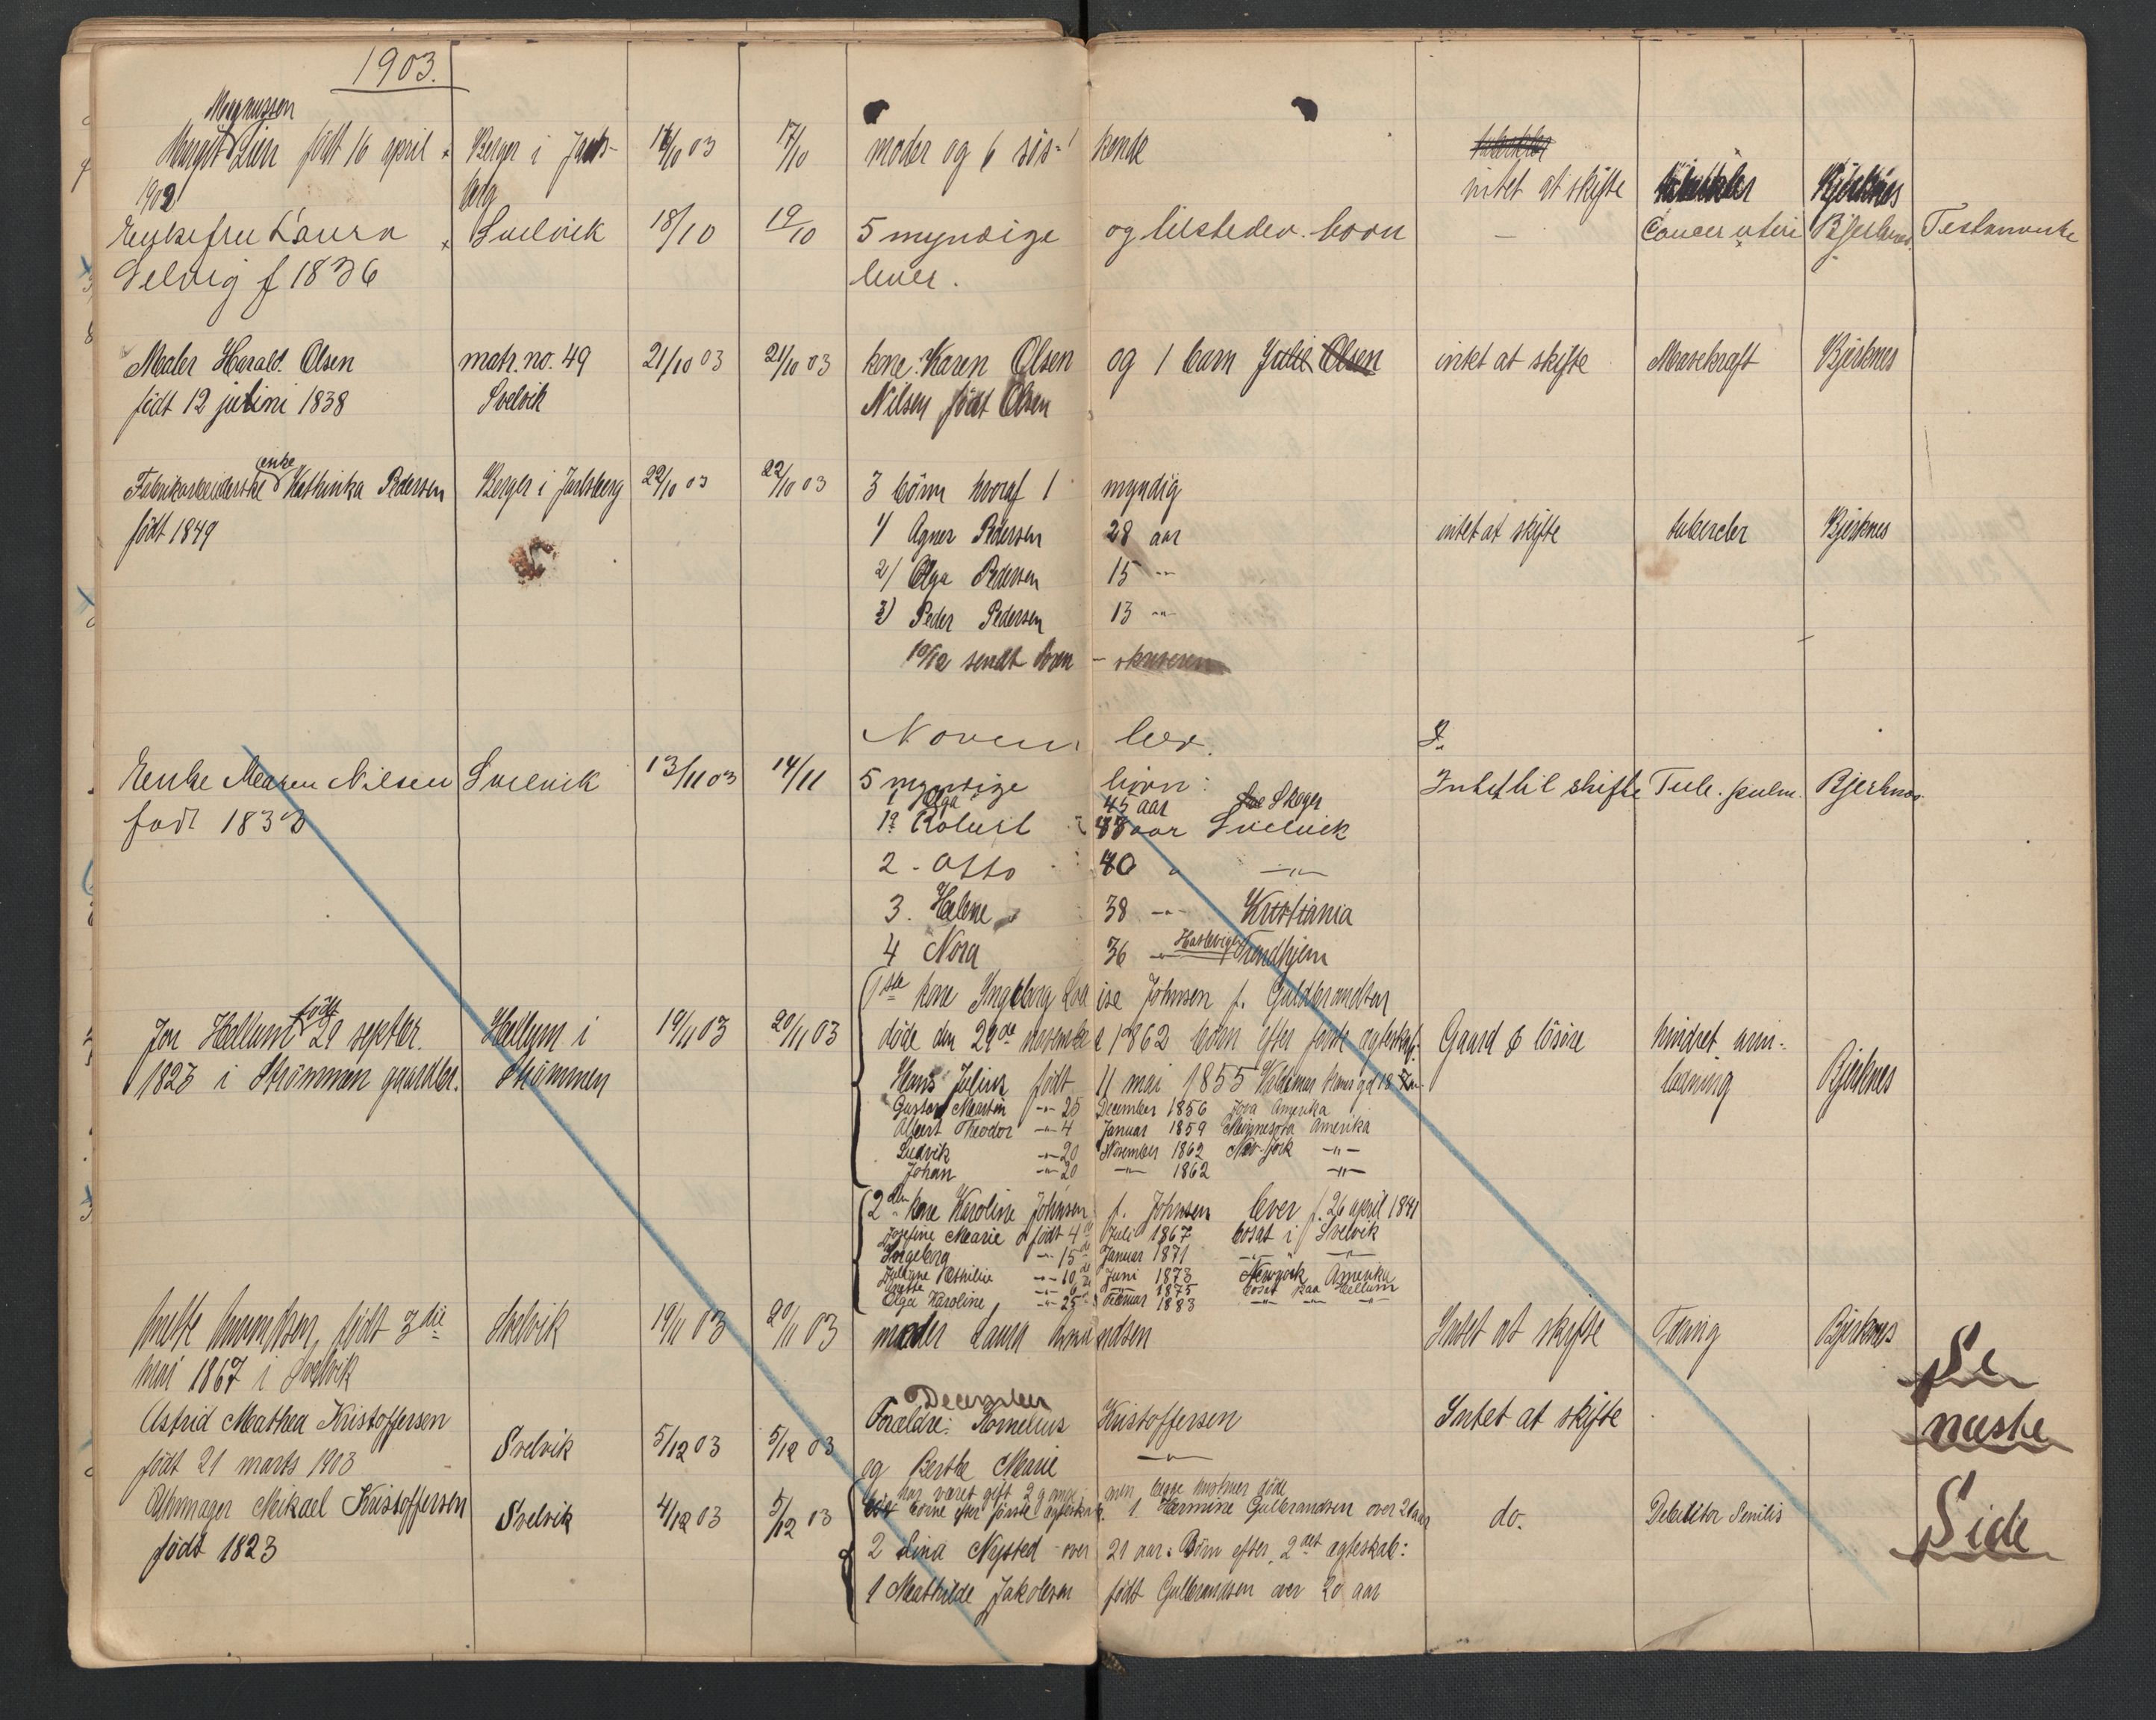 1903.
Magnussen
Margit Lien født 16 april Berger i Jarls- 17/10 03 17/10 moder og 6 søs- kende tuberkler
1902 berg intet at skifte tuberkler Bjerknes
Enkefru Laura Svelvik 18/10 19/10 5 myndige og tilstedev. børn — Cancer uteri Bjerknes Testamente
Selvig f 1836 lever.
Maler Harald Olsen matr. no. 49 21/10 03 21/10 03 kone: Karen Olsen og 1 barn Julie Olsen intet at skifte Marekraft Bjerknes
født 12 juni 1838 Svelvik Nilsen født Olsen
enke
Fabrikarbeiderske Kathinka Pedersen Berger i Jarlsberg 22/10 03 22/10 03 3 børn hvoraf 1 myndig
født 1849 1) Agnes Pedersen 28 aar intet at skifte tubercler Bjerknes
2) Olga Pedersen 15 -"-
3) Peder Pedersen 13 -"-
10/12 sendt Soren - skriveren
Novem ber.
Enke Maren Nilsen Svelvik 13/11 03 14/11 5 myndige børn: Intet til skifte Tub. pulm. Bjerknes
født 1833 1 Olga 45 aar Skoger
1a Robert 43 aar Svelvik
2 - Otto 40 " -"-
3. Helene 38 -"- Kristiania
4 Nora 36 -"- Trondhjem
1ste kone Ingeborg Lov ise Johnsen f. Guldbrandsen
Jon Hellum født 29 septbr. Hellum i 19/11 03 20/11 03 døde den 29de novembe r 1862 børn efter første ægteskab: Gaard & løsøre hindret urin-
1823 i Strømmen gaardbr. Strømmen Hans Julius født 11 mai 1855 ladning Bjerknes
Gustav Martin -"- 25 December 1856 Iova Amerika
Albert Theodor -"- 4 Januar 1859 Minnesota Amerika
Ludvik -"- 20 November 1862 New-Jork -"-
Johan -"- 20 -"- 1862 -"-
2den kone Karoline Johnsen f. Johnsen lever f. 26 april 1841
Josefine Marie født 4de Juli 1867 bosat i Svelvik
Ingeborg -"- 15de Januar 1871 -"- " -"-
Juliane Mathilie -"- 10de Juni 1873 Newyork Amerika
1875 bosat paa Hellum
Olga Karoline -"- 25 Februar 1883 -"- -"- -"-
født 3die Svelvik 19/11 03 20/11 03 moder Laura Amundsen Intet at skifte Tæring Bjerknes
mai 1867 i Svelvik
December
Astrid Mathea Kristoffersen Svelvik 5/12 03 5/12 03 Forældre: Kornelius Kristoffersen Intet at skifte
født 21 marts 1903 og Berthe Marie -"-
har været gift 2 gange men begge hustruer døde
Mikael Kristoffersen Svelvik 4/12 03 5/12 03 børn efter første ægteskab. 1. Hermine Gulbrandsen over 21 aar do. Debilitor Senilis
født 1823 2 Lina Nysted over 21 aar. Børn efter 2det ægteskab:
1 Mathilde Jakobsen født Gulbrandsen over 20 aar
Se
næste
Side